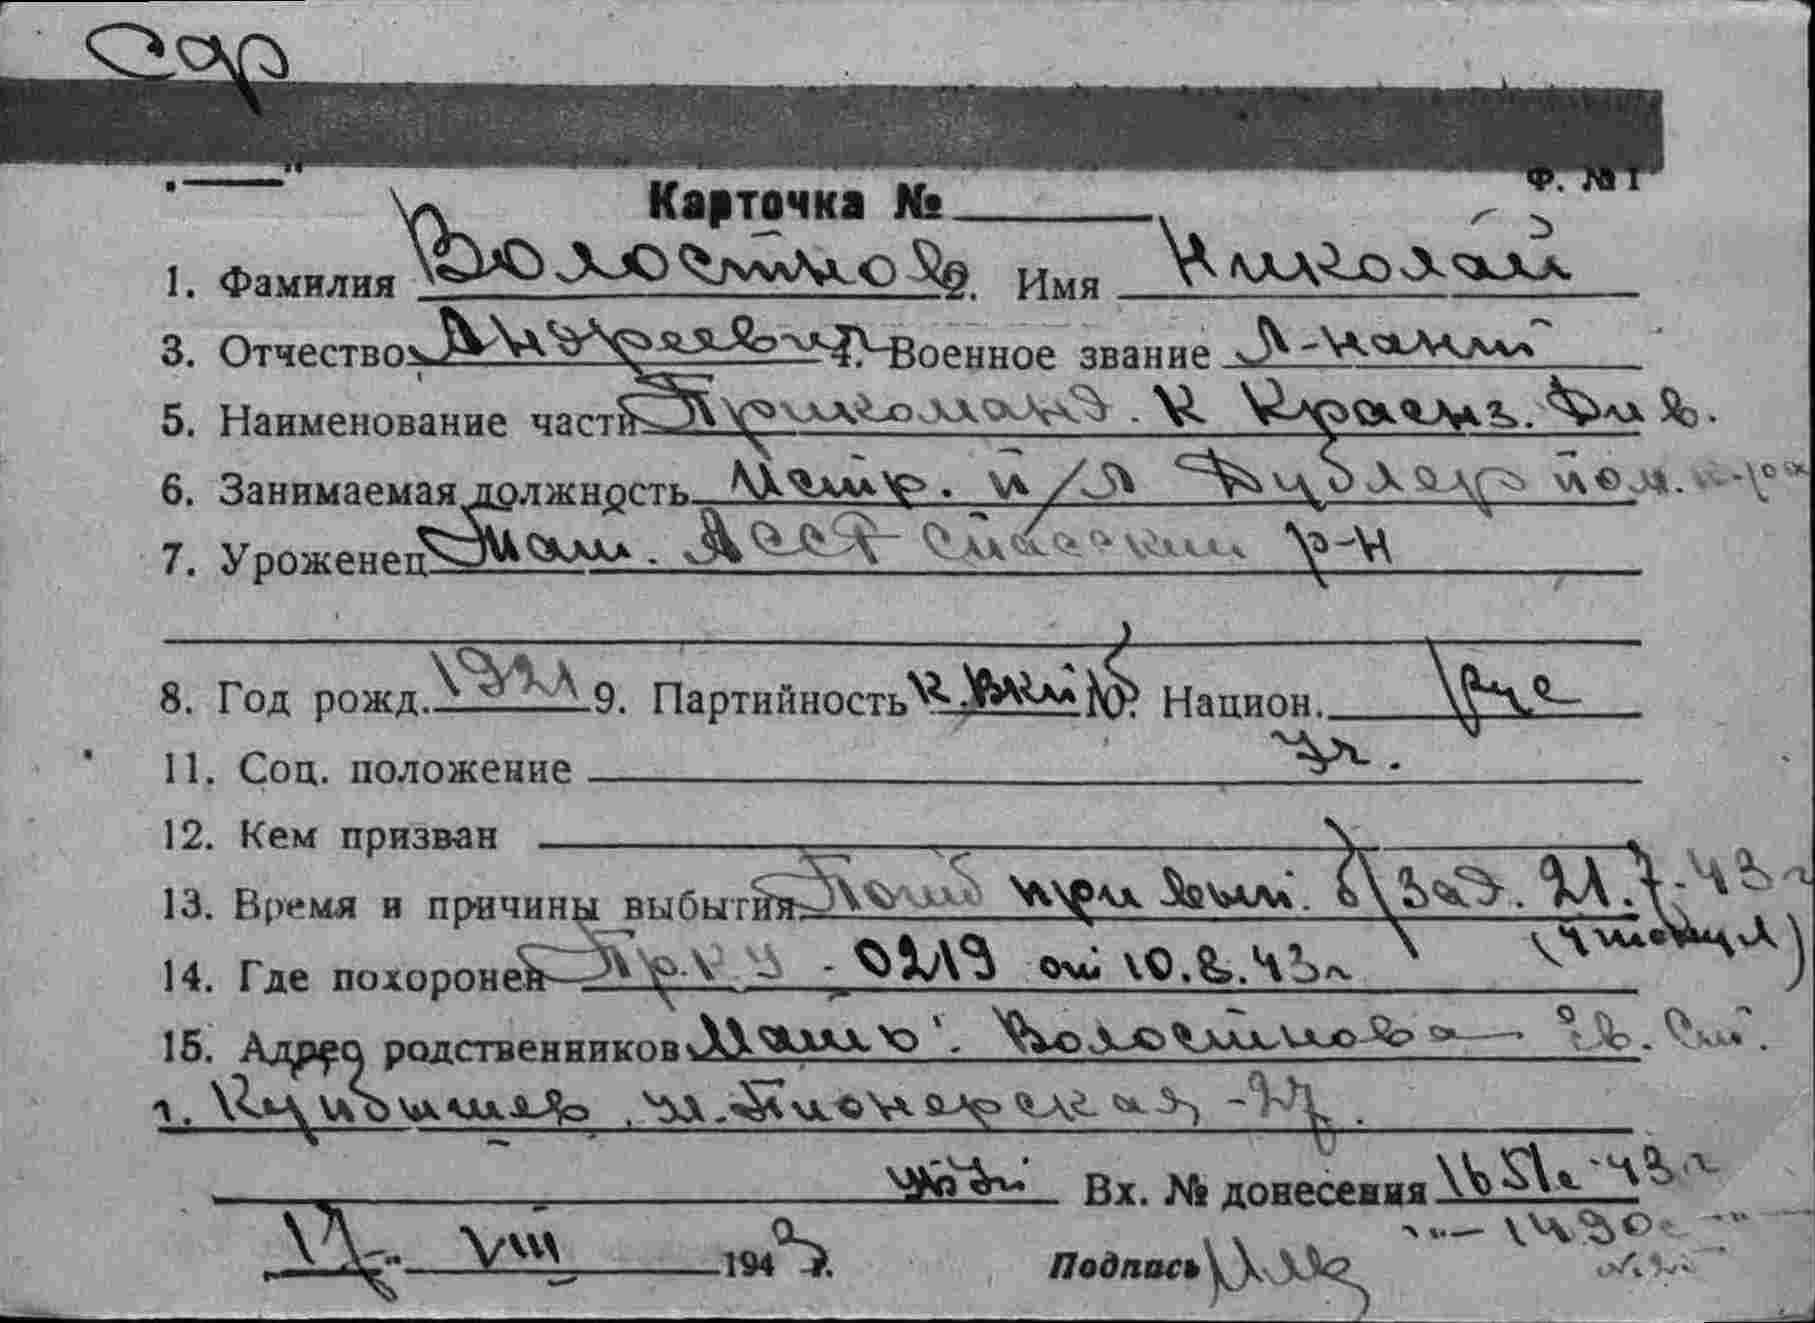 сдр
Ф. № 1
Карточка №
1. Фамилия Волостнов 2. Имя Николай
3. Отчество Андреевич 4. Военное звание л-нант
5. Наименование части Прикоманд. к Краснз. Див.
6. Занимаемая должность Истр. п/л Дублер пом.
7. Уроженец Тат. АССР Спасский р-н
8. Год рожд. 1921 9. Партийность к. ВКПб 10. Национ. рус
11. Соц. положение уч.
12. Кем призван
13. Время и причины выбытия Погиб при вып. б/зад. 21.7.43 г
14. Где похоронен Пр. К У - 0219 от 10.8.43 г (утонул)
15. Адрес родственников Мать: Волостнова Ев. Ст.
г. Куйбышев, ул. Пионерская - 27.
Вх. № донесения 1651с 43 г
17 VIII 1943 г. Подпись
-"- 1490с -"-